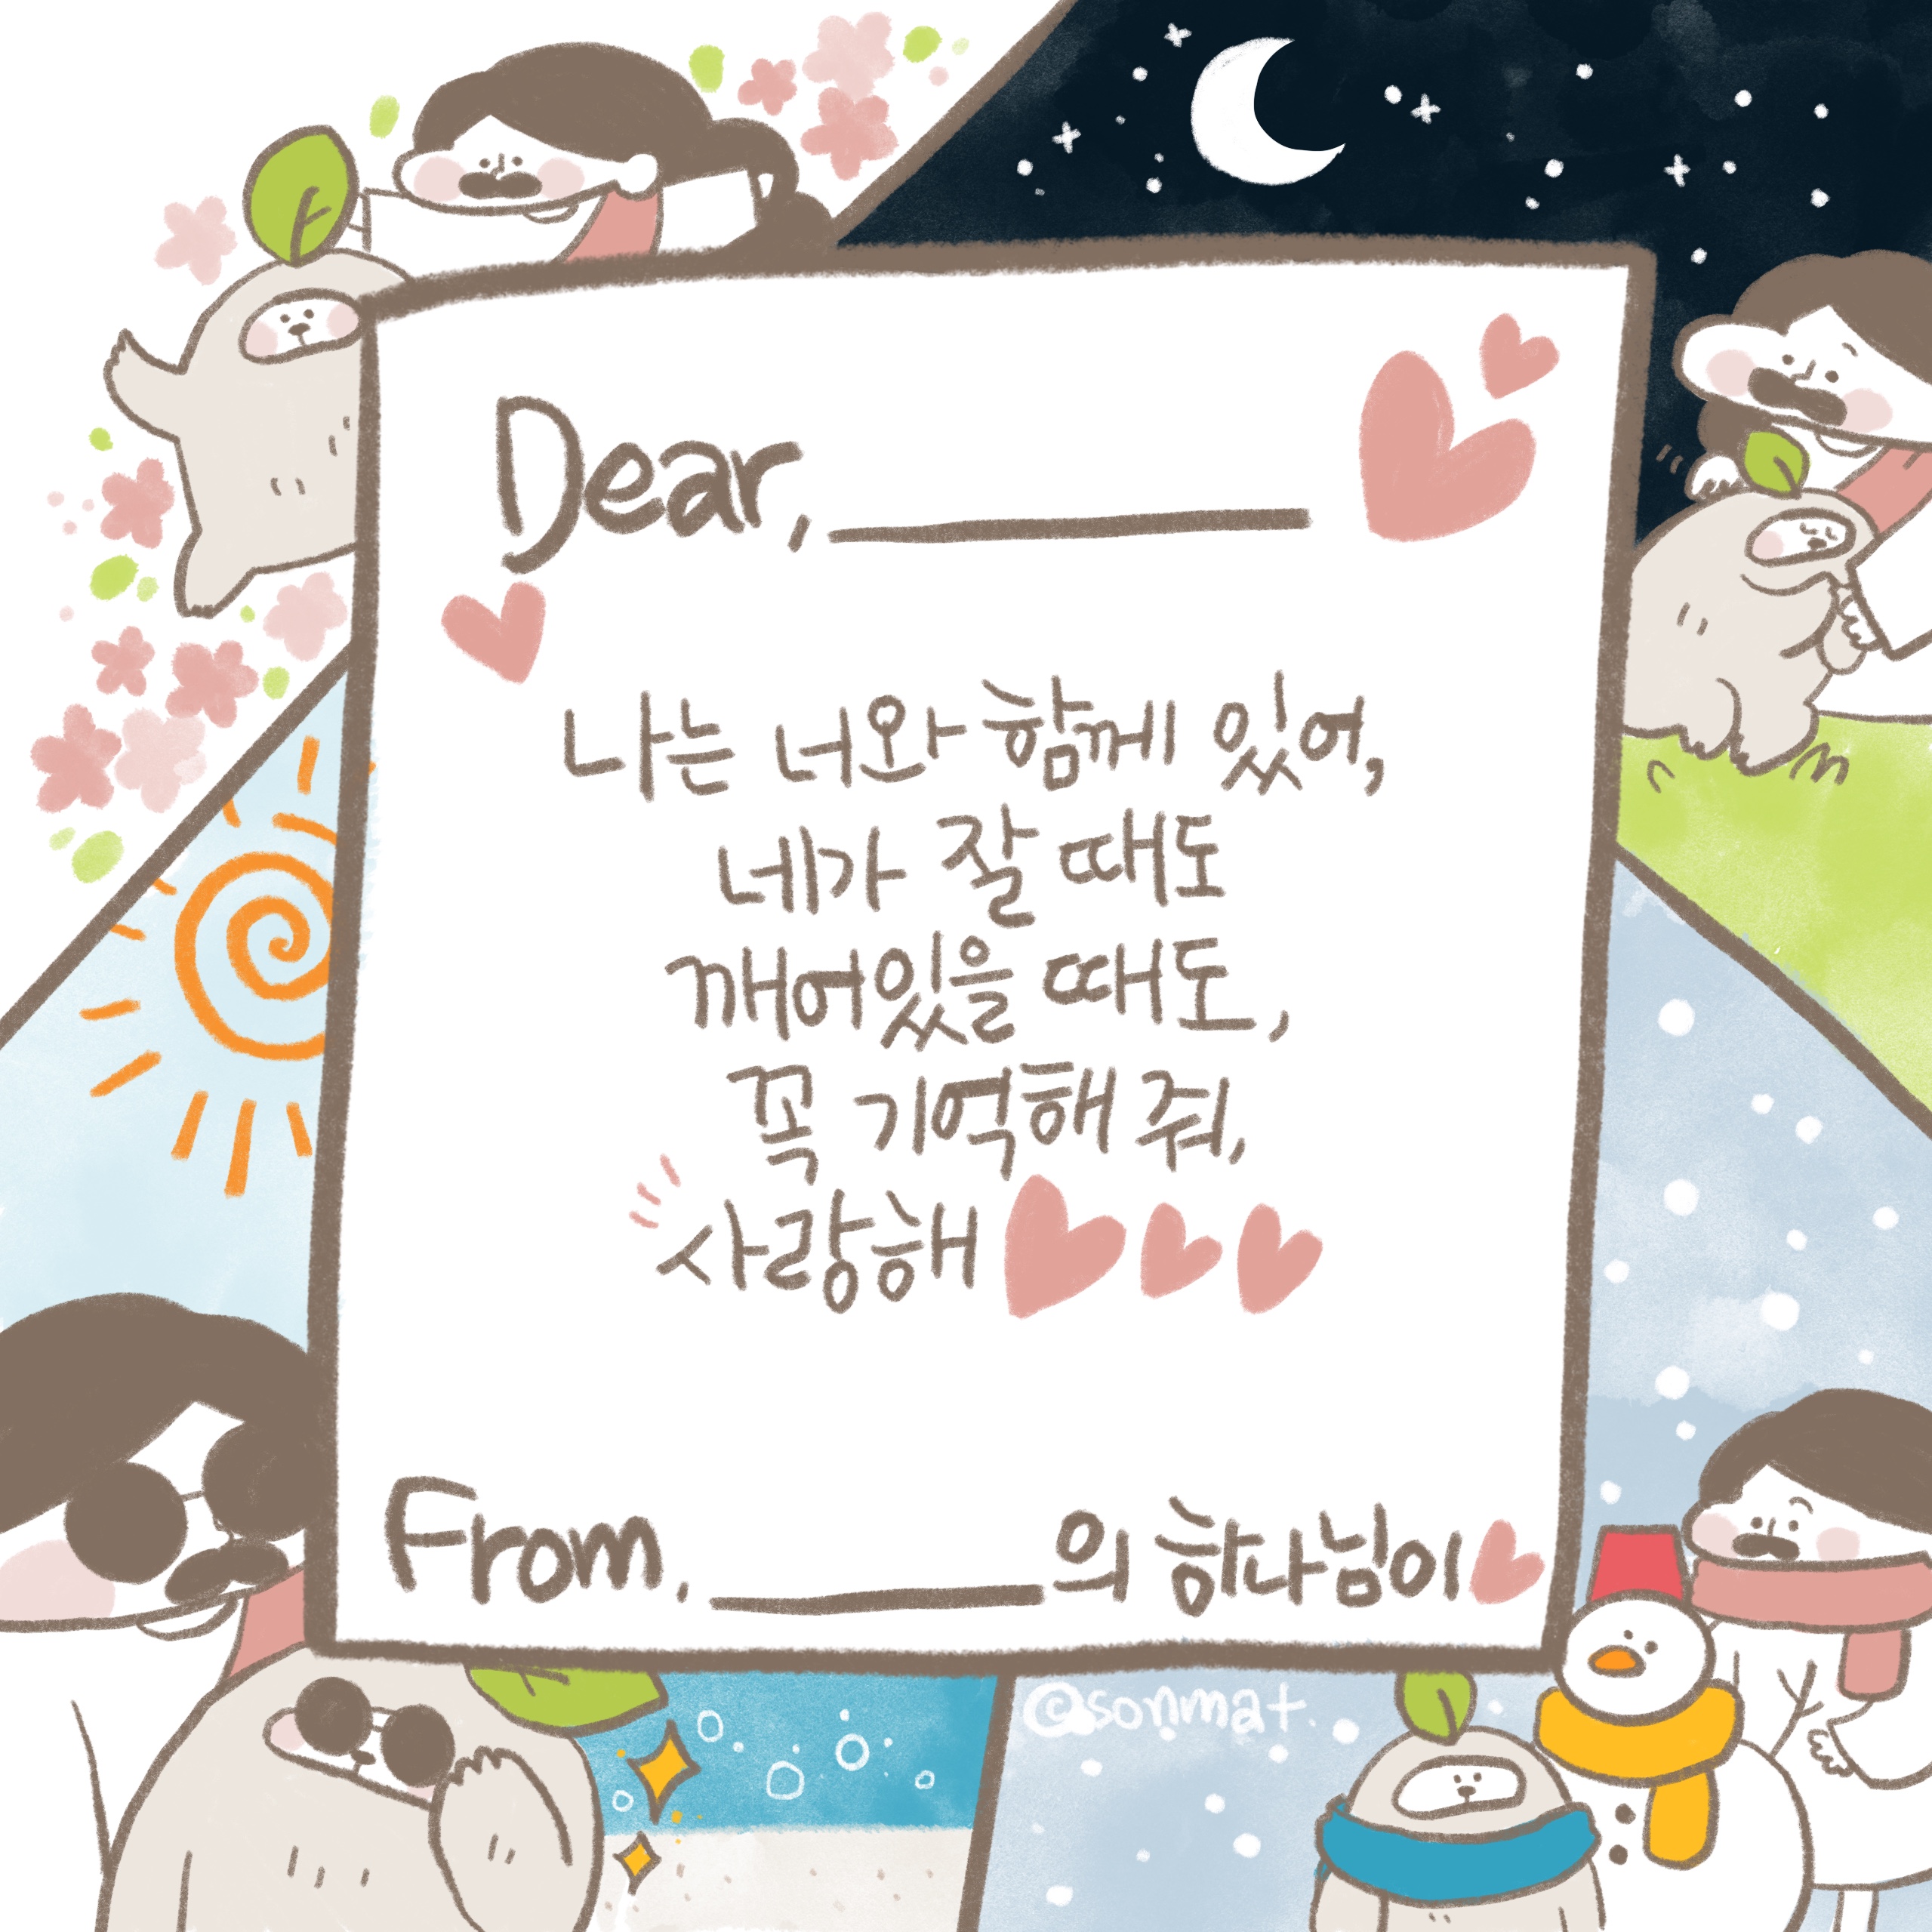 Dear, 
나는 너와 함께 있어,
네가 잘 때도
깨어있을 때도,
꼭 기억해 줘,
사랑해
From. 의 하나님이
©sonmat.